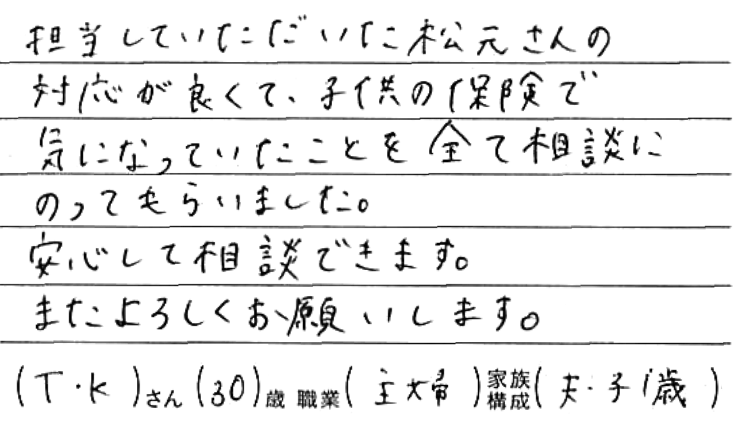 担当していただいた松元さんの
対応が良くて、子供の保険で
気になっていたことを全て相談に
のってもらいました。
安心して相談できます。
またよろしくお願いします。
(T・K)さん(30)歳 職業(主婦)家族構成(夫・子1歳)